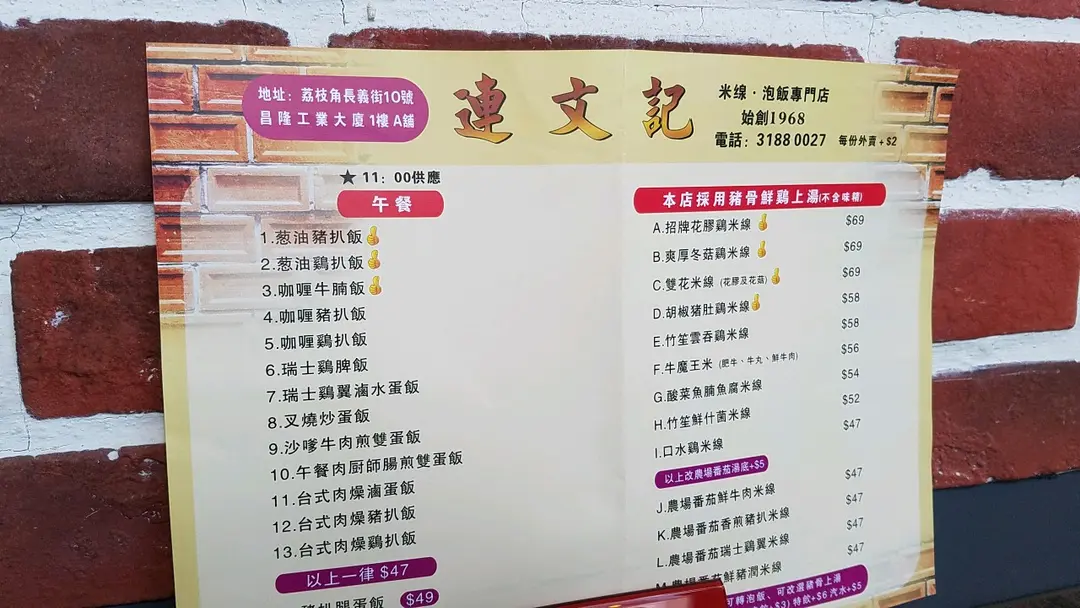 地址：荔枝角長義街10號
昌隆工業大廈1樓A舖
連文記
米線·泡飯專門店
始創1968
電話：3188 0027 每份外賣+$2
★ 11：00供應
午餐
1.葱油豬扒飯
2.葱油鷄扒飯
3.咖喱牛腩飯
4.咖喱豬扒飯
5.咖喱鷄扒飯
6.瑞士鷄脾飯
7.瑞士鷄翼滷水蛋飯
8.叉燒炒蛋飯
9.沙嗲牛肉煎雙蛋飯
10.午餐肉厨師腸煎雙蛋飯
11.台式肉燥滷蛋飯
12.台式肉燥豬扒飯
13.台式肉燥鷄扒飯
以上一律 $47
豬扒腿蛋飯 $49
本店採用豬骨鮮鷄上湯(不含味精)
A.招牌花膠鷄米線 $69
B.爽厚冬菇鷄米線 $69
C.雙花米線 (花膠及花菇) $69
D.胡椒豬肚鷄米線 $58
E.竹笙雲吞鷄米線 $58
F.牛魔王米 (肥牛、牛丸、鮮牛肉) $56
G.酸菜魚腩魚腐米線 $54
H.竹笙鮮什菌米線 $52
I.口水鷄米線 $47
以上改農場番茄湯底+$5
J.農場番茄鮮牛肉米線 $47
K.農場番茄香煎豬扒米線 $47
L.農場番茄瑞士鷄翼米線 $47
M.農場番茄鮮豬潤米線 $47
可轉泡飯、可改選豬骨上湯
+$3) 特飲+$6 汽水+$5